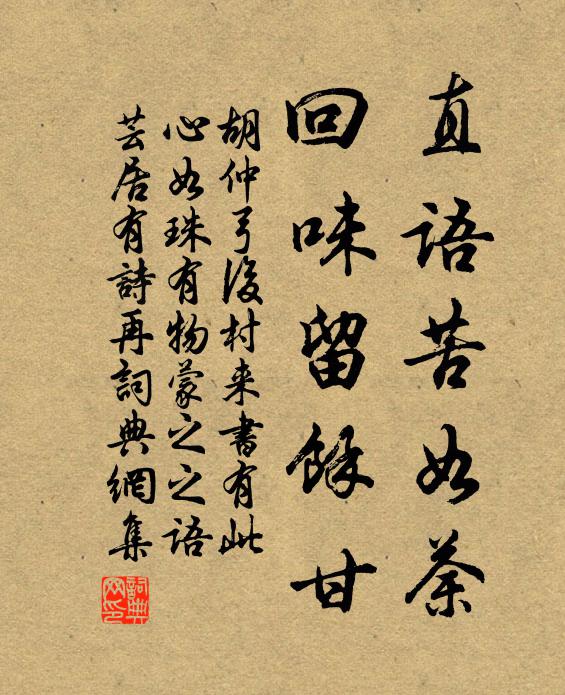 直語苦如荼
回味留餘甘
胡仲弓後村来書有此
心如珠有物蒙之之語
芸居有詩再詞典網集
詞典网印